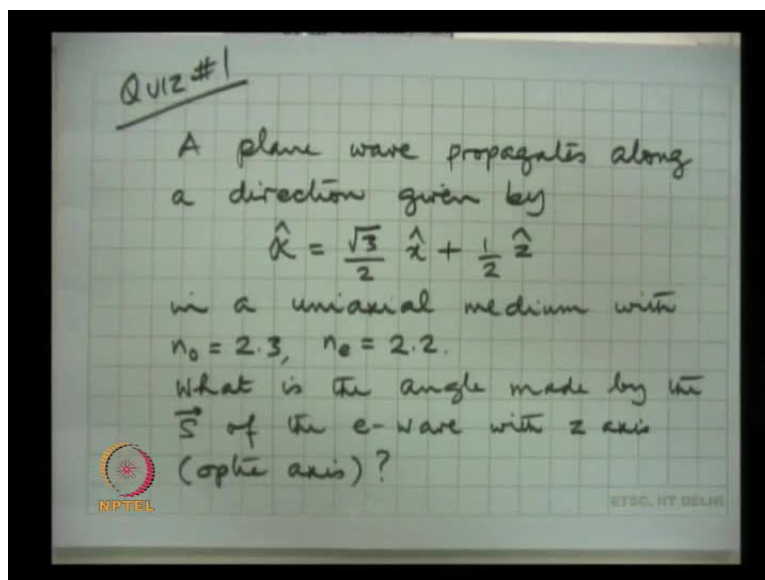 QUIZ #1
A plane wave propagates along
a direction given by
κ̂ = √3/2 x̂ + 1/2 ẑ
in a uniaxial medium with
n₀ = 2.3, nₑ = 2.2.
What is the angle made by the
S⃗ of the e-wave with z axis
(optic axis)?
NPTEL
ETSC, IIT DELHI